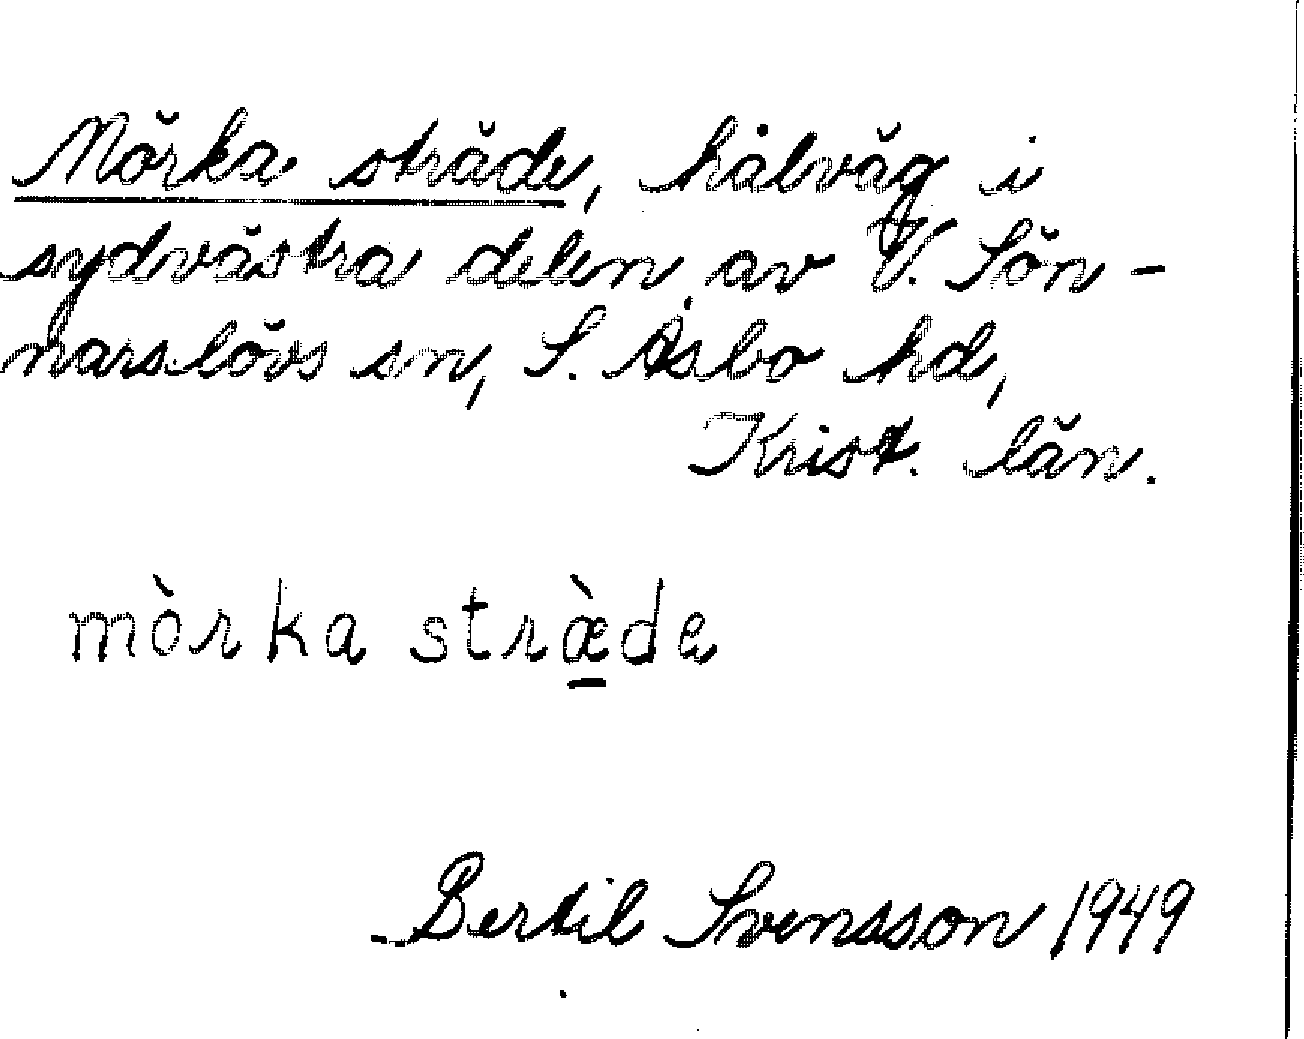 Mörka sträde, hålväg i
sydvästra delen av V. Sön-
narslövs sn, S. Åsbo hd,
Krist. län.
mòrka stræ̠̀de
Bertil Svensson 1949